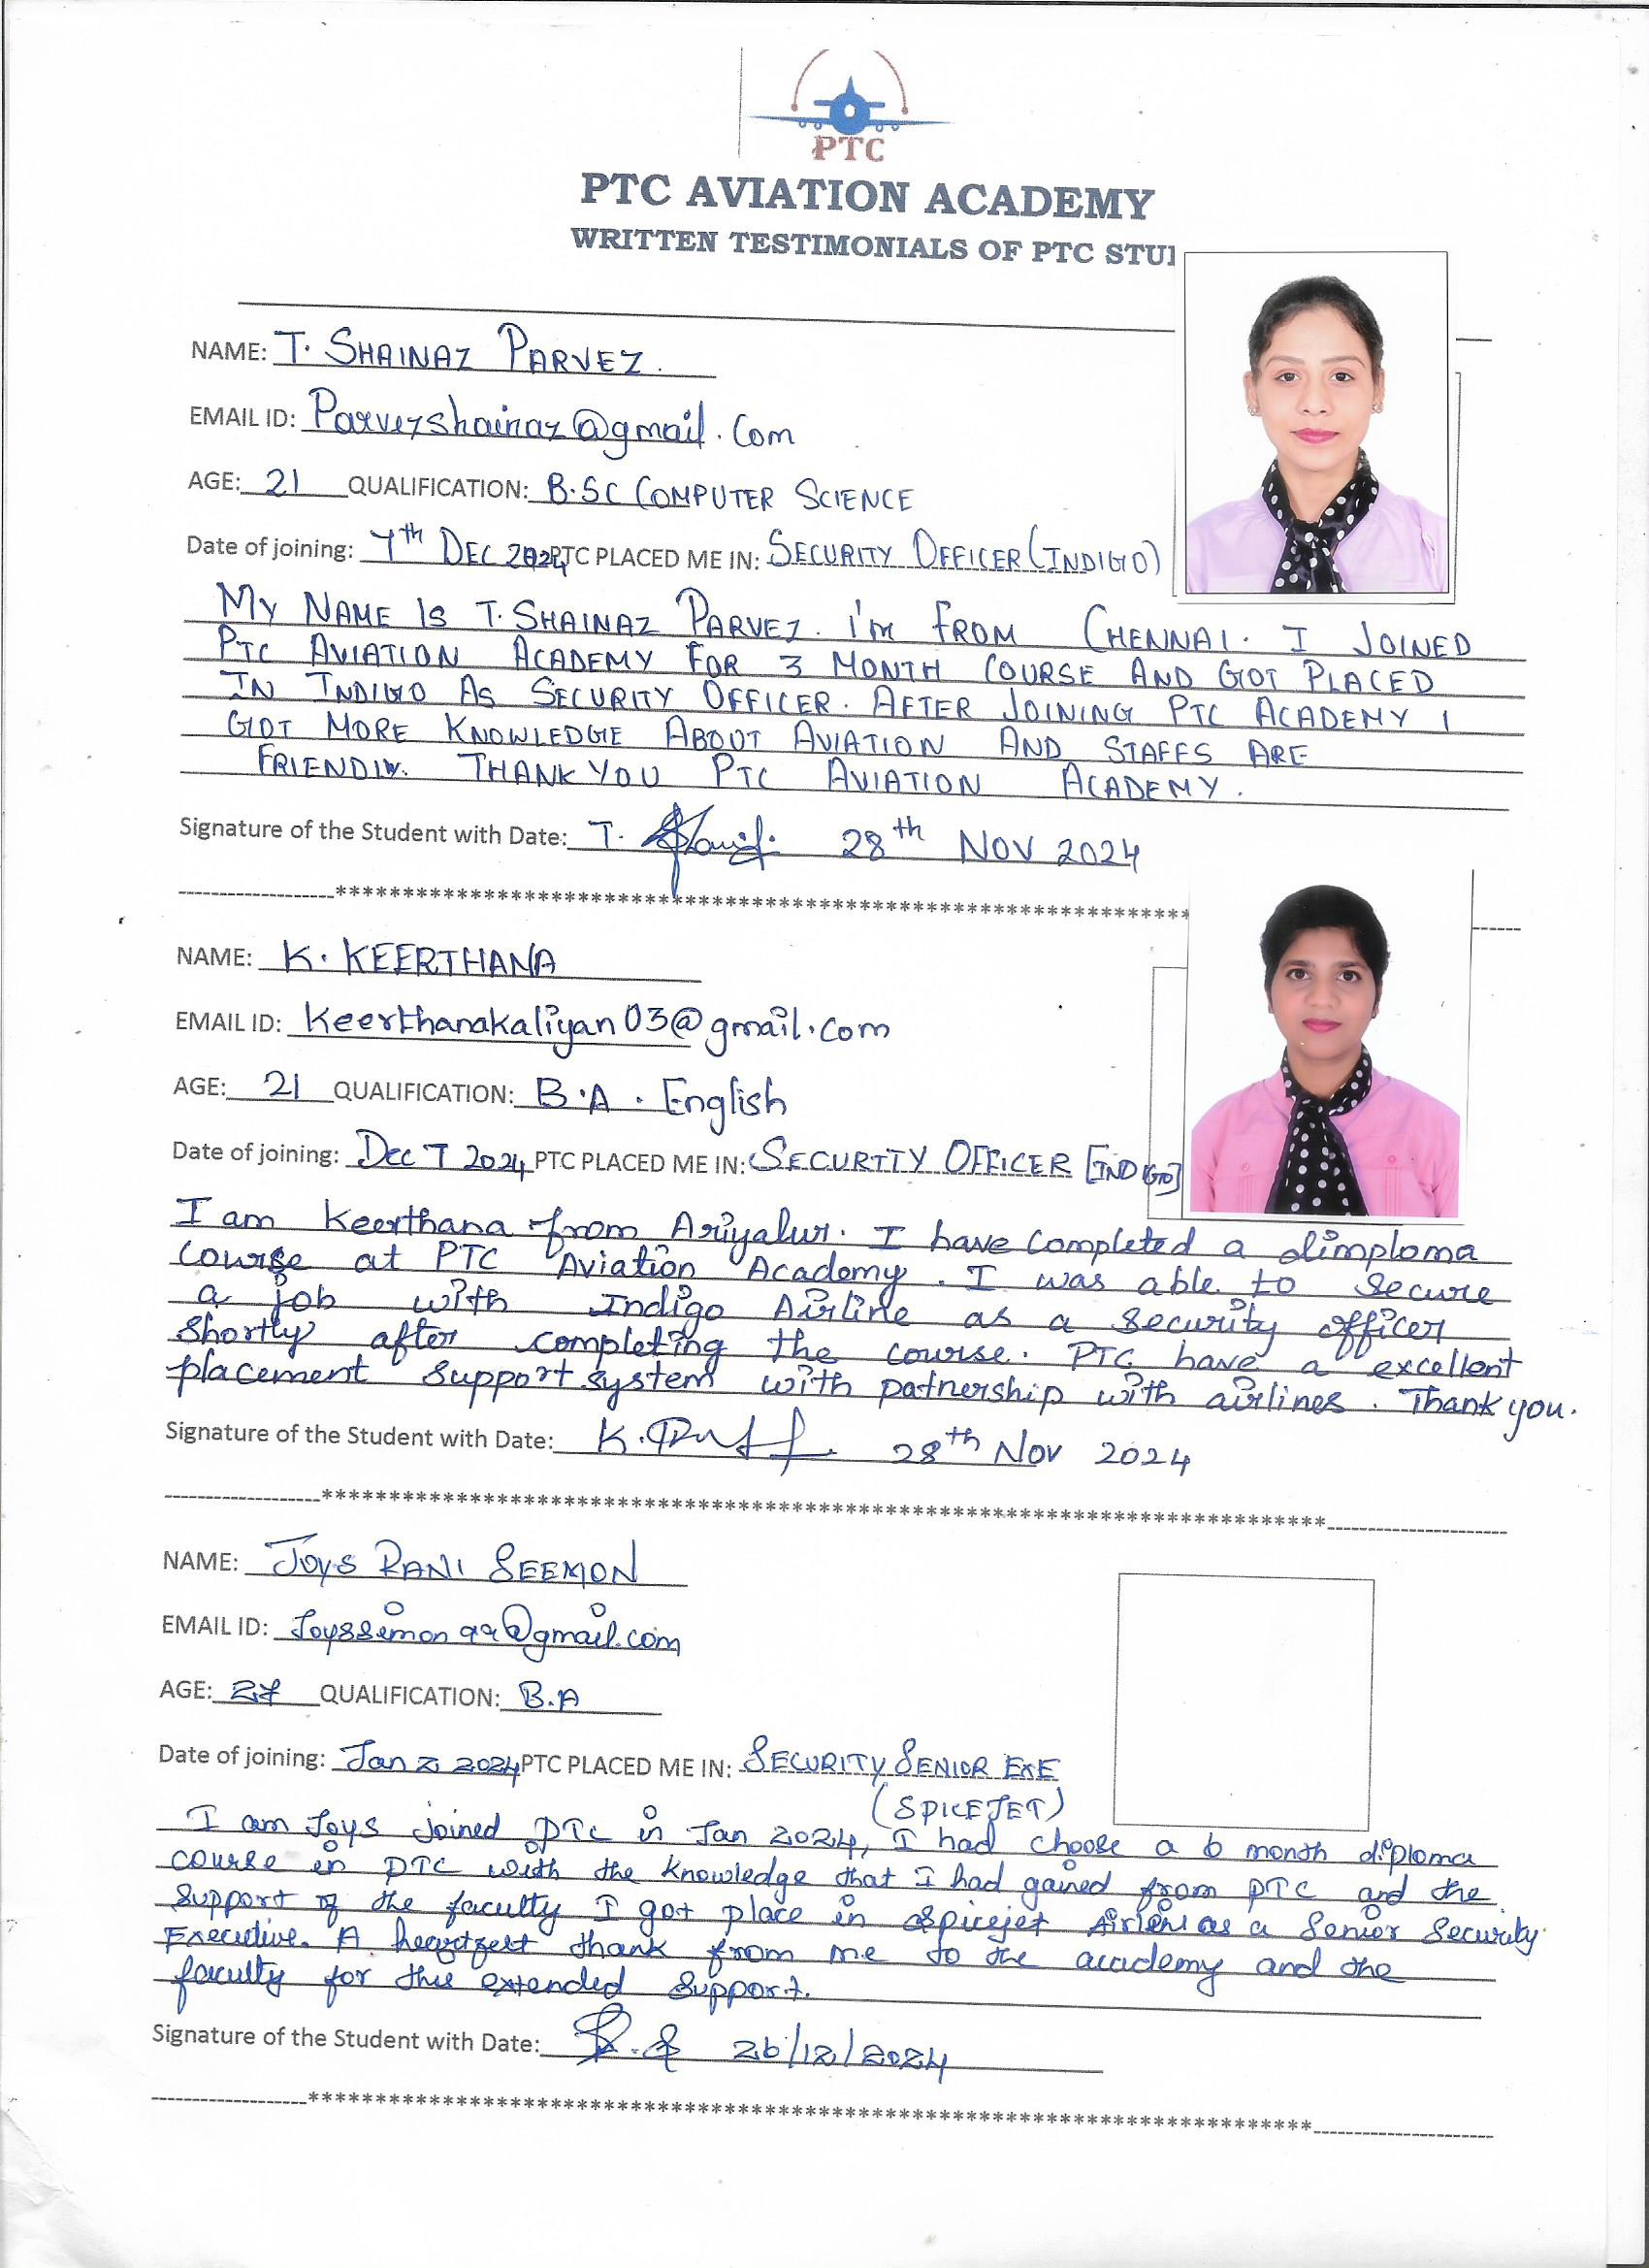 PTC
PTC AVIATION ACADEMY
WRITTEN TESTIMONIALS OF PTC STU
NAME: T. SHAINAZ PARVEZ.
EMAIL ID: Parvezshainaz@gmail.com
AGE: 21 QUALIFICATION: B.SC COMPUTER SCIENCE
Date of joining: 7th DEC 2024 PTC PLACED ME IN: SECURITY OFFICER (INDIGO)
MY NAME IS T. SHAINAZ PARVEZ. I'm FROM CHENNAI. I JOINED
PTC AVIATION ACADEMY FOR 3 MONTH COURSE AND GOT PLACED
IN INDIGO AS SECURITY OFFICER. AFTER JOINING PTC ACADEMY I
GOT MORE KNOWLEDGE ABOUT AVIATION AND STAFFS ARE
THANK YOU PTC AVIATION ACADEMY.
Signature of the Student with Date: T. 28th NOV 2024
NAME: K. KEERTHANA
EMAIL ID: keerthanakaliyan03@gmail.com
AGE: 21 QUALIFICATION: B.A. English
Date of joining: Dec 7 2024 PTC PLACED ME IN: SECURITY OFFICER [INDIGO]
I am Keerthana from Ariyalur. I have completed a dimploma
course at PTC Aviation Academy. I was able to secure
a job with Indigo Airline as a security officer
shortly after completing the course. PTC have a excellent
placement support system with patnership with airlines. Thank you.
Signature of the Student with Date: K. 28th Nov 2024
NAME: JOYS RANI SEEMON
EMAIL ID: Joyssimon99@gmail.com
AGE: 27 QUALIFICATION: B.A
Date of joining: Jan 2 2024 PTC PLACED ME IN: SECURITY SENIOR EXE
(SPICEJET)
I am Joys joined PTC in Jan 2024, I had choose a 6 month diploma
course in PTC with the knowledge that I had gained from PTC and the
support of the faculty I got place in Spicejet as a Senior Security
Executive. A heartfelt thank from me to the academy and the
faculty for this extended support.
Signature of the Student with Date: 26/12/2024